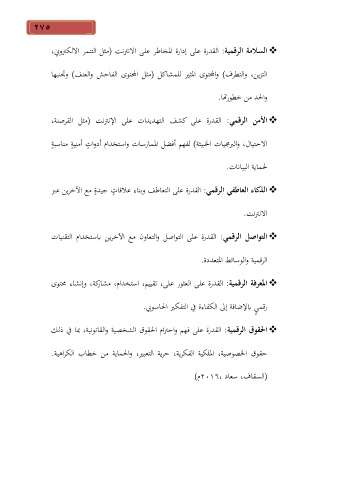 ٢٧٥
❖ السلامة الرقمية: القدرة على إدارة المخاطر على الانترنت (مثل التنمر الالكتروني،
التزين، والتطرف) والمحتوى المثير للمشاكل (مثل المحتوى الفاحش والعنف) وتجنبها
والحد من خطورتها.
❖ الأمن الرقمي: القدرة على كشف التهديدات على الإنترنت (مثل القرصنة،
الاحتيال، والبرمجيات الخبيثة) لفهم أفضل الممارسات واستخدام أدواتٍ أمنيةٍ مناسبةٍ
لحماية البيانات.
❖ الذكاء العاطفي الرقمي: القدرة على التعاطف وبناء علاقاتٍ جيدةٍ مع الآخرين عبر
الانترنت.
❖ التواصل الرقمي: القدرة على التواصل والتعاون مع الآخرين باستخدام التقنيات
الرقمية والوسائط المتعددة.
❖ المعرفة الرقمية: القدرة على العثور على، تقييم، استخدام، مشاركة، وإنشاء محتوى
رقمي بالإضافة إلى الكفاءة في التفكير الحاسوبي.
❖ الحقوق الرقمية: القدرة على فهم واحترام الحقوق الشخصية والقانونية، بما في ذلك
حقوق الخصوصية، الملكية الفكرية، حرية التعبير، والحماية من خطاب الكراهية.
(السقاف، سعاد ،٢٠١٦م)